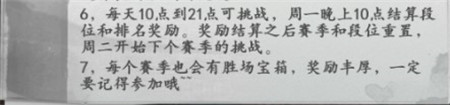 6，每天10点到21点可挑战，周一晚上10点结算段
位和排名奖励。奖励结算之后赛季和段位重置，
周二开始下个赛季的挑战。
7，每个赛季也会有胜场宝箱，奖励丰厚，一定
要记得参加哦~~